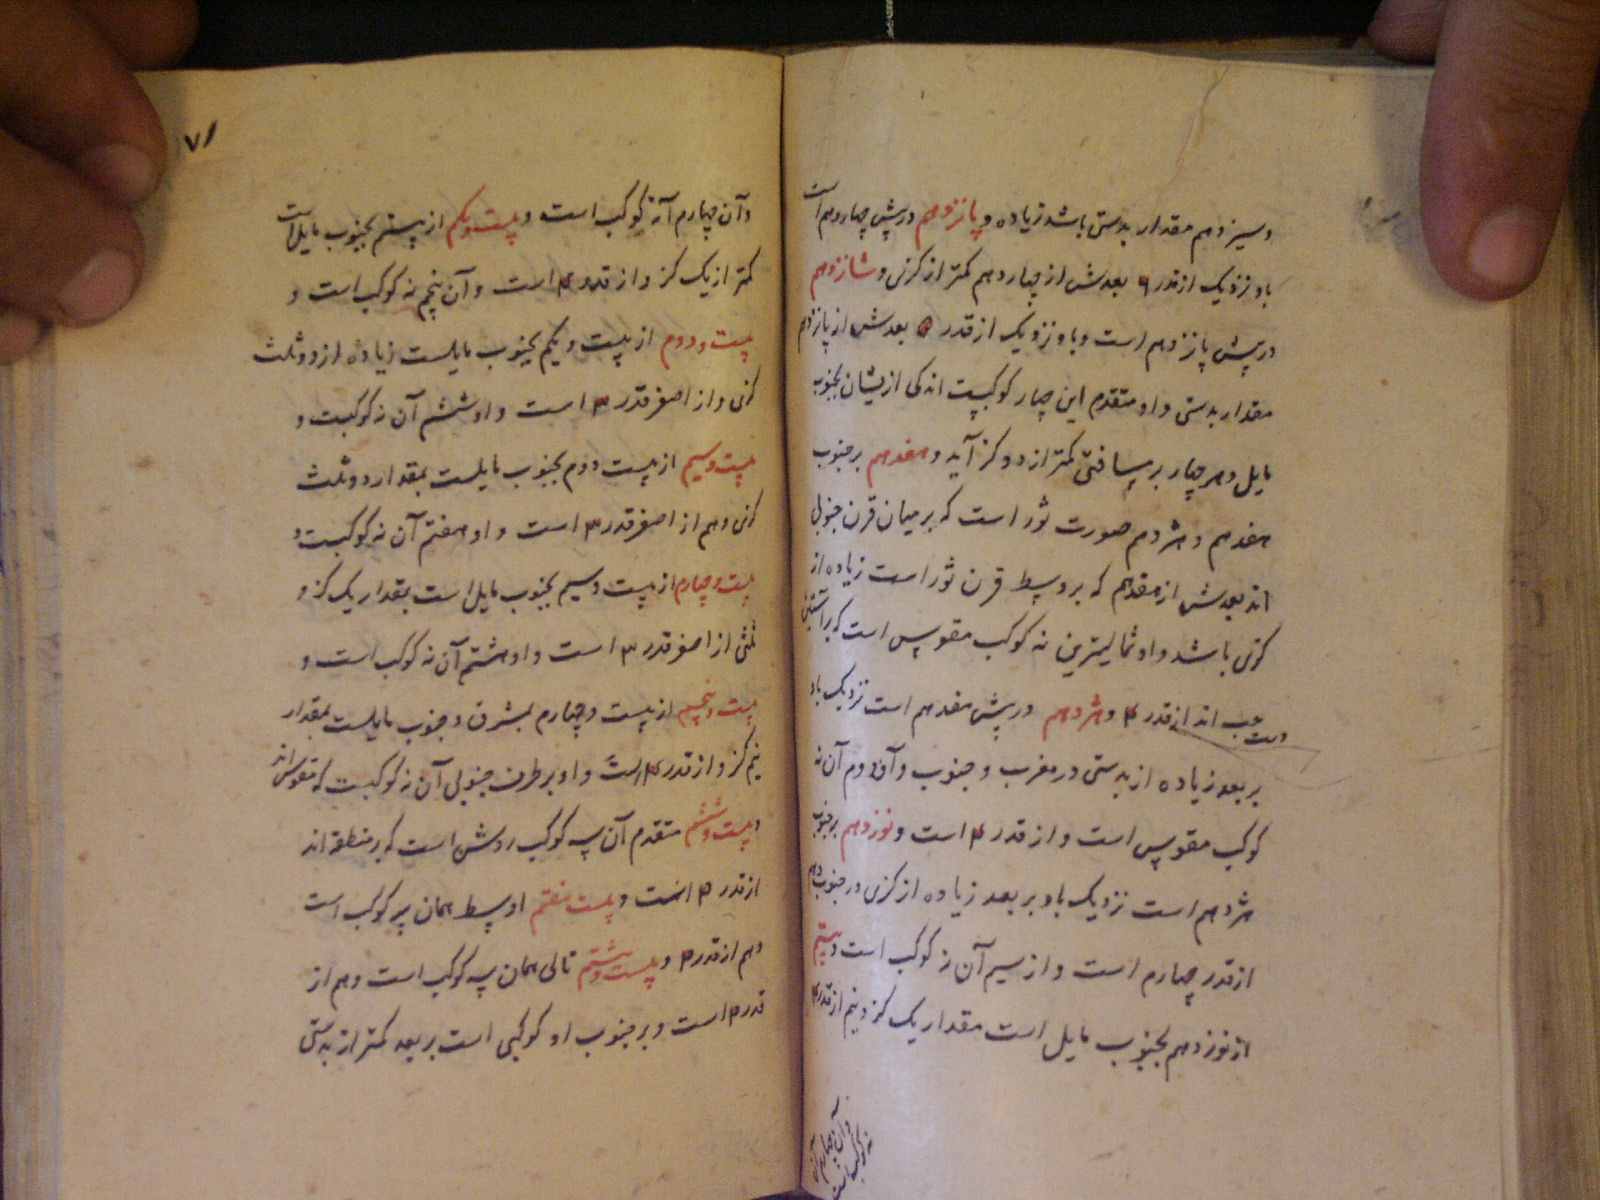 و سیزدهم مقدار بدستی باشد زیاده و پانزدهم در پش چهاردهم است
باو نزدیک از قدر ۶ بعدش از چهاردهم کمتر از کزی و شانزدهم
در پش پانزدهم است و باو نزدیک از قدر ۵ بعدش از پانزدهم
مقدار بدستی و او متقدم این چهار کوکبست اندکی ازیشان بجنوب
مایل و هر چهار بر مسافتی کمتر از دو کز آید و هفدهم بر جنوب
هفدهم و هژدهم صورت ثور است که بر میان قرن جنوبی
اند بعدش از هقدهم که بر وسط قرن ثور است زیاده از
کزی باشد و او شمالیترین نه کوکب مقوس است که بر آستین
دست جب اند از قدر ۴ و هژدهم در پش هفدهم است نزدیک باو
بر بعد زیاده از بدستی در مغرب و جنوب و آن دوم آن نه
کوکب مقوس است و از قدر ۴ است و نوزدهم بر جنوب
هژدهم است نزدیک باو بر بعد زیاده از کزی در جنوب وهم
از قدر چهارم است و از سیم آن نه کوکب است و بیستم
از نوزدهم بجنوب مایل است مقدار یک کز و نیم از قدر ۴
و آن چهارم آن
نه کوکب است
۷۱
و آن چهارم آن نه کوکب است و بیست و یکم از بیستم بجنوب مایل است
کمتر از یک کز و از قدر ۴ است و آن پنجم نه کوکب است و
بیست و دوم از بیست و یکم بجنوب مایلست زیاده از دو ثلث
کزی و از اصغر قدر ۳ است و او ششم آن نه کوکبست و
بیست و سیم از بیست و دوم بجنوب مایلست بمقدار دو ثلث
کزی و هم از اصغر قدر ۳ است و او هفتم آن نه کوکبست و
بیست و چهارم از بیست و سیم بجنوب مایل است بمقدار یک کز و
ثلثی از اصغر قدر ۳ است و او هشتم آن نه کوکب است و
بیست و پنجم از بیست و چهارم بمشرق و جنوب مایلست بمقدار
نیم کز و از قدر ۴ است و او بر طرف جنوبی آن نه کوکبست که مقوس اند
و بیست و ششم متقدم آن سه کوکب روشن است که بر منطقه اند
از قدر ۲ است و بیست هفتم اوسط همان سه کوکب است
و هم از قدر ۲ و بیست و هشتم تالی همان سه کوکب است و هم از
قدر ۲ است و بر جنوب او کوکبی است بر بعد کمتر از بدستی